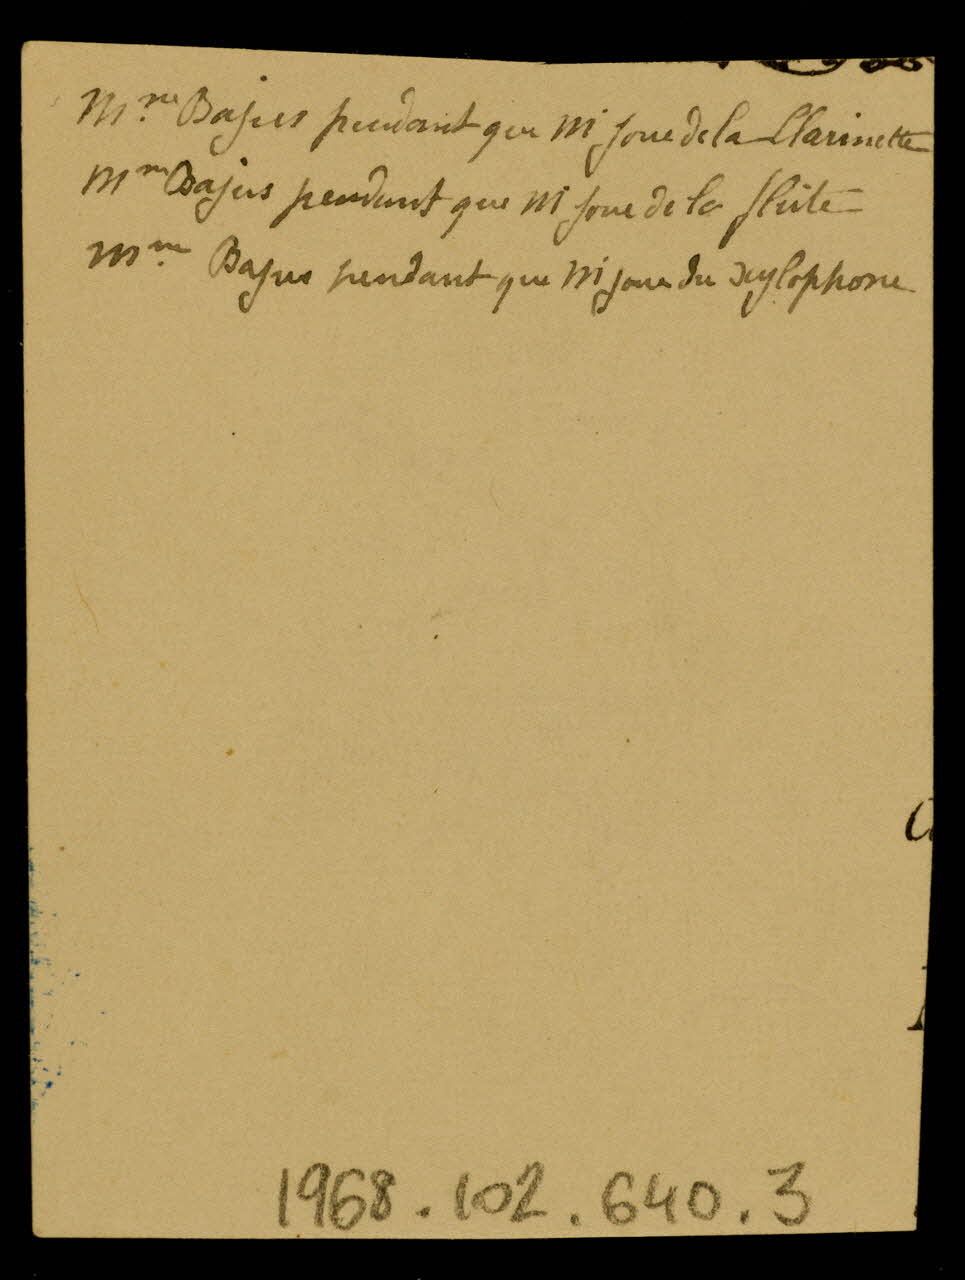 Mme Bajus pendant que M joue de la Clarinette
Mme Bajus pendant que M joue de la flûte
Mme Bajus pendant que M joue du xylophone
1968.102.640.3